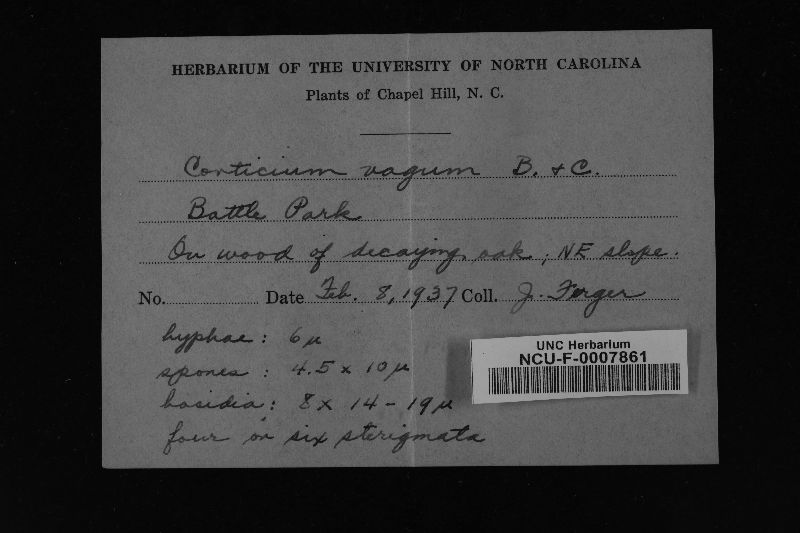 HERBARIUM OF THE UNIVERSITY OF NORTH CAROLINA
Plants of Chapel Hill, N. C.
Corticium vagum B. & C.
Battle Park
On wood of decaying oak, NE slope.
No. Date Feb. 8, 1937 Coll. J. Ferger
hyphae: 6 µ
spores: 4.5 x 10 µ
basidia: 8 x 14 - 19 µ
four or six sterigmata
UNC Herbarium
NCU-F-0007861